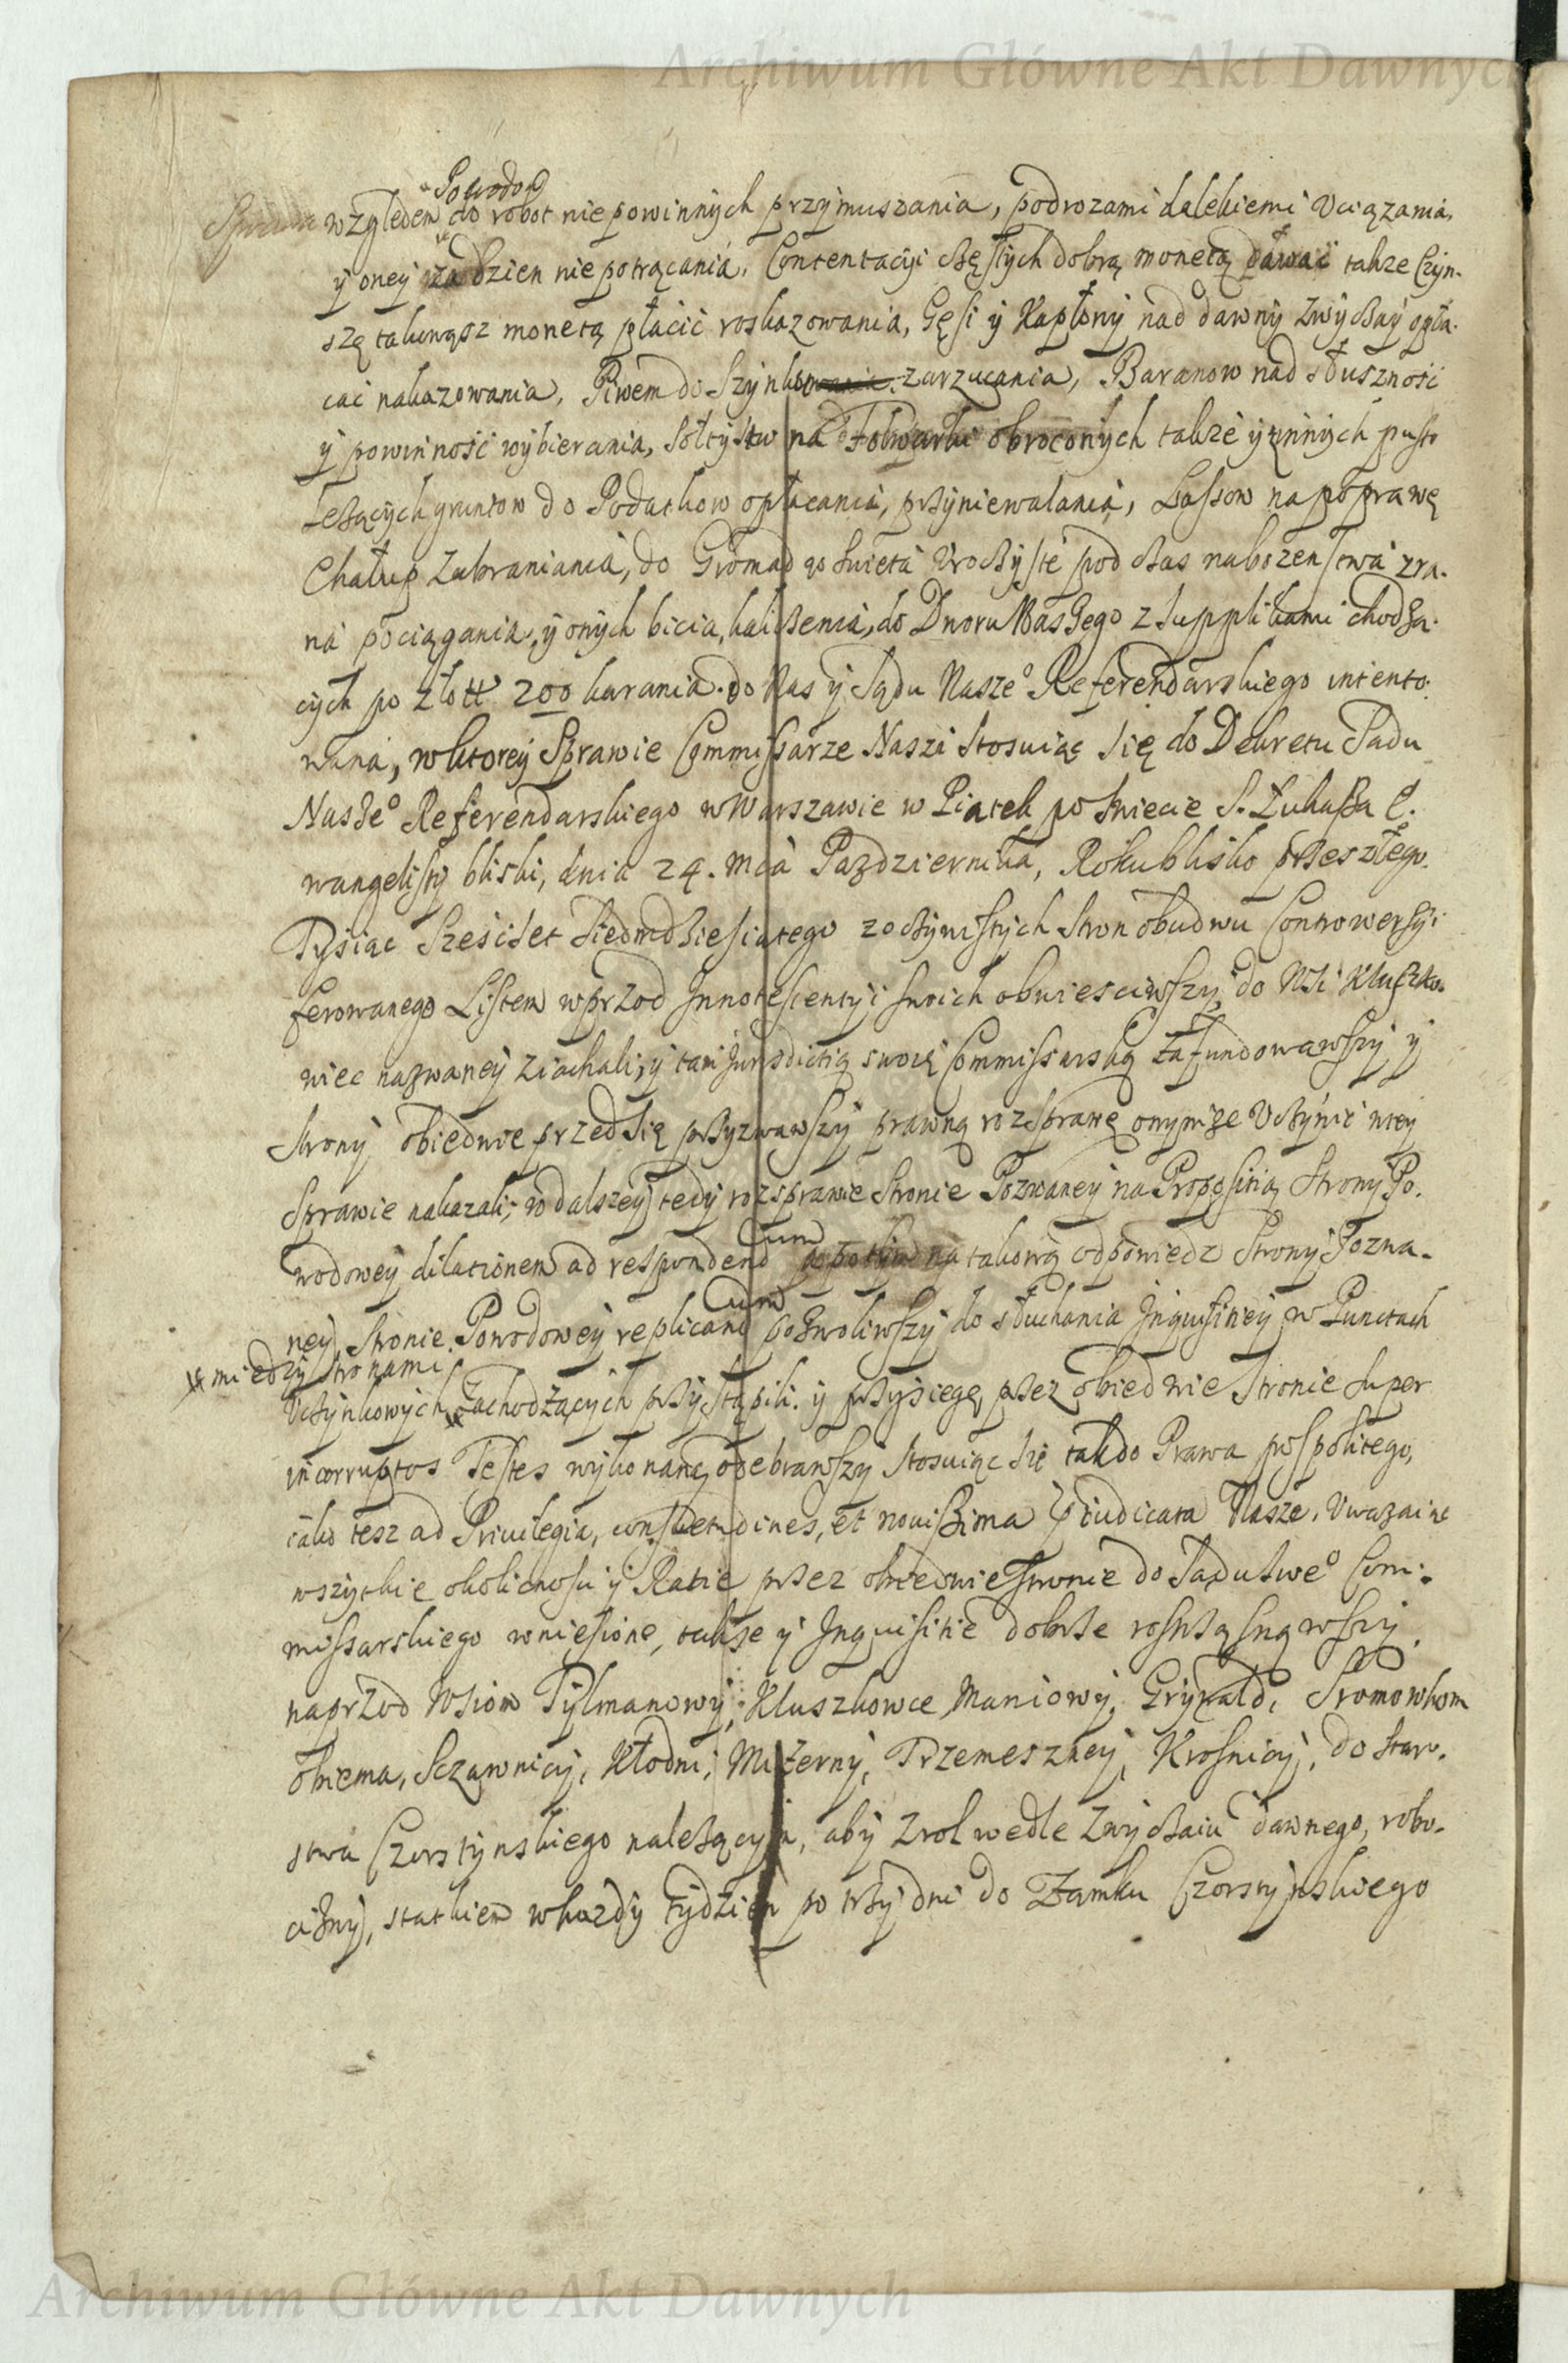 Archiwum Główne Akt Dawnych
Powodow
względem do robot niepowinnych przymuszania, podrozami dalekiemi Uciązania,
y oney za dzien niepotrącania, Contentacyi częstych dobrą monetą dawać takze Czyn-
szę takungosz monetą płacić roskazowania, Gęsi y Kapłony nad dawny Zwyczay opła-
cać nakazowania, Piwem do Szynkowania zarzucania, Baranow nad słuszność
y powinność wybierania, Sołtystw na Folwarki obroconych także y innych pusto
Lezących gruntow do Podatkow opłacania, przyniewalania, Lassow na poprawę
Chałup Zabraniania, do Gromad w Swieta Uroczyste pod czas nabozenstwa zra-
na pociągania, y onych bicia, kaliczenia, do Dworu Naszego z Supplikami chodzą-
cych po złott 200 karania. do Nas y Sądu Naszeo Referendarskiego intento-
wana, w ktorey Sprawie Commissarze Naszi Stosuiąc Się do Dekretu Sadu
Naszeo Referendarskiego w Warszawie w Piatek po Swiecie S. Łukasza E-
wangelisty bliski, dnia 24. Mca Pazdziernika, Roku blisko przeszłego
Tysiąc Szescset Siedmdziesiatego z oczywistych Stron obudwu Controwersyi
ferowanego Listem wprzod Innotescentyi swoich obwiesciwszy, do Wsi Kluszko-
wiec nazwaney ziachali, y tam Jurisdictią swoię Commissarską zafundowawszy y
Strony obiedwie przed Się przyzwawszy prawną rozsprawę onymże Uczynić w tey
Sprawie nakazali; w dalszey tedy rozsprawie Stronie Pozwaney na Propositią Strony Po-
wodowey dilationem ad respondendum a potym na takową odpowiedz Strony Pozwa-
ney, Stronie Powodowey replicandum pozwoliwszy do słuchania Inquisitiey w Punctach
między Stronami
Uczynkowych Zachodzących przystąpili. y przysięgę przez obiedwie Stronie super
incorruptos Testes wykonaną odebrawszy Stosuiąc Się tak do Prawa pospolitego,
iako tesz ad Privilegia, consuetudines, et novissima praeiudicata Nasze, Uwazaiąc
wszytkie okolicnosci y Ratie przez obiedwie Stronie do Sądu Sweo Com-
missarskiego wniesione, takze y Inquisitie dobrze rostrząsnąwszy,
naprzod Wsiom Tylmanowy, Kluszkowce Maniowy, Grywałd, Sromowkom
obiema, Sczawnicy, Kłodni, Mizerny, Przemeszney, Krosnicy, do Staro-
stwa Czorstynskiego nalezącym, aby z rol wedle Zwyczaiu dawnego, robo-
cizny, statkiem w kazdy tydzien po trzy dni do Zamku Czorstynskiego
Archiwum Główne Akt Dawnych